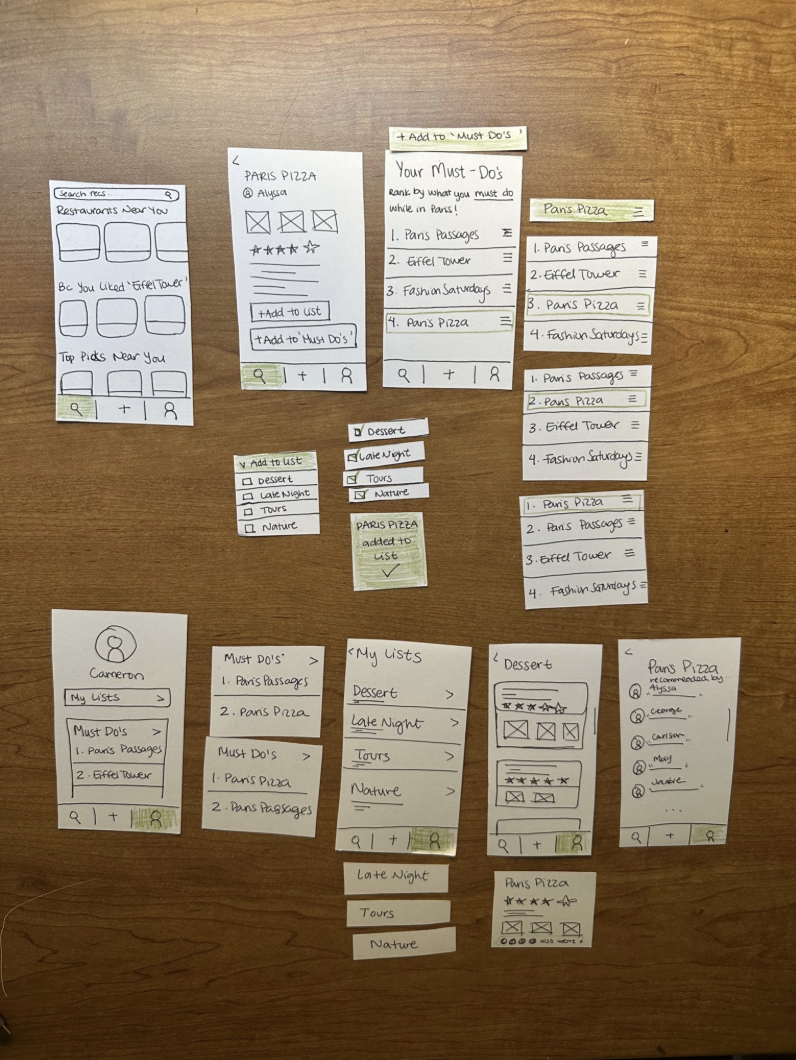 Search recs...
Restaurants Near You
Bc You Liked 'Eiffel Tower'
Top Picks Near You
+
<
PARIS PIZZA
Alyssa
+Add to List
+Add to 'Must Do's'
+
+ Add to 'Must Do's'
Your Must-Do's
Rank by what you must do
while in Paris!
1. Paris Passages
2. Eiffel Tower
3. Fashion Saturdays
4. Paris Pizza
+
Paris Pizza
1. Paris Passages
2. Eiffel Tower
3. Paris Pizza
4. Fashion Saturdays
1. Paris Passages
2. Paris Pizza
3. Eiffel Tower
4. Fashion Saturdays
1. Paris Pizza
2. Paris Passages
3. Eiffel Tower
4. Fashion Saturdays
v Add to List
Dessert
Late Night
Tours
Nature
Dessert
Late Night
Tours
Nature
PARIS PIZZA
added to
List
Cameron
My Lists >
Must Do's >
1. Paris Passages
2. Eiffel Tower
+
Must Do's' >
1. Paris Passages
2. Paris Pizza
Must Do's >
1. Paris Pizza
2. Paris Passages
< My Lists
Dessert >
Late Night >
Tours >
Nature >
+
Late Night
Tours
Nature
< Dessert
+
Paris Pizza
also went >
<
Paris Pizza
recommended by..
Alyssa
George
Carson
May
...
+